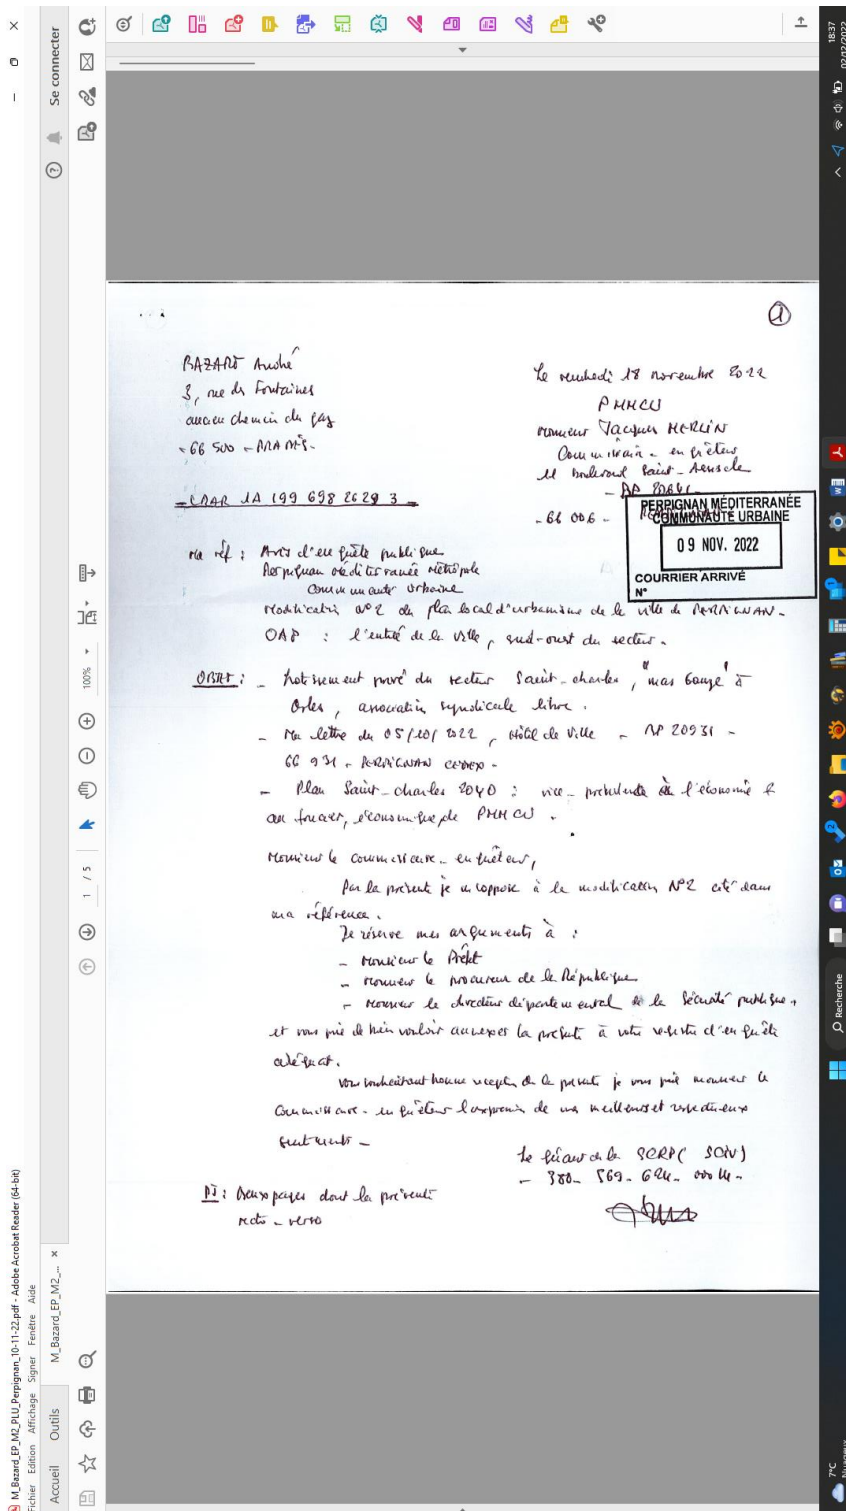 M_Bazard_EP_M2_PLU_Perpignan_10-11-22.pdf - Adobe Acrobat Reader (64-bit)
Fichier Edition Affichage Signer Fenêtre Aide
Accueil Outils M_Bazard_EP_M2_... × Se connecter
1 / 5 100%
①
BAZARD André
3, rue des Fontaines
ancien chemin du gaz
- 66 500 - PRADES -
- LRAR 1A 199 698 2629 3 -
Le vendredi 18 novembre 2022
PMMCU
Monsieur Jacques MERLIN
Commissaire - enquêteur
11 boulevard Saint-Assiscle
- BP 20641 -
- 66 006 -
PERPIGNAN MÉDITERRANÉE
COMMUNAUTÉ URBAINE
09 NOV. 2022
COURRIER ARRIVÉ
N°
Ma réf : Avis d'enquête publique
Perpignan Méditerranée Métropole
Communauté Urbaine
Modification n°2 du plan local d'urbanisme de la ville de PERPIGNAN -
OAP : l'entité de la ville, sud-ouest du secteur.
OBJET : - Lotissement privé du secteur Saint-Charles, "mas Gouze" à
Orles, association syndicale libre.
- Ma lettre du 05/10/2022, Hôtel de Ville - BP 20931 -
66 931 - PERPIGNAN CEDEX -
- Plan Saint-Charles 2040 : vice-présidente à l'économie &
au foncier, économique de PMMCU.
Monsieur le commissaire - enquêteur,
Par la présente je m'oppose à la modification N°2 cité dans
ma référence.
Je réserve mes arguments à :
- Monsieur le Préfet
- Monsieur le procureur de la République
- Monsieur le directeur départemental de la Sécurité publique,
et vous prie de bien vouloir annexer la présente à votre registre d'enquête
adéquat.
Vous souhaitant bonne réception de la présente je vous prie monsieur le
Commissaire - enquêteur l'expression de mes meilleurs et respectueux
sentiments -
Le gérant de la SCRP (SCIV)
- 380 - 569 - 624 - 000 14 -
PJ : Deux pages dont la présente
recto - verso
7°C
Nuageux
Recherche
18:37
02/12/2022